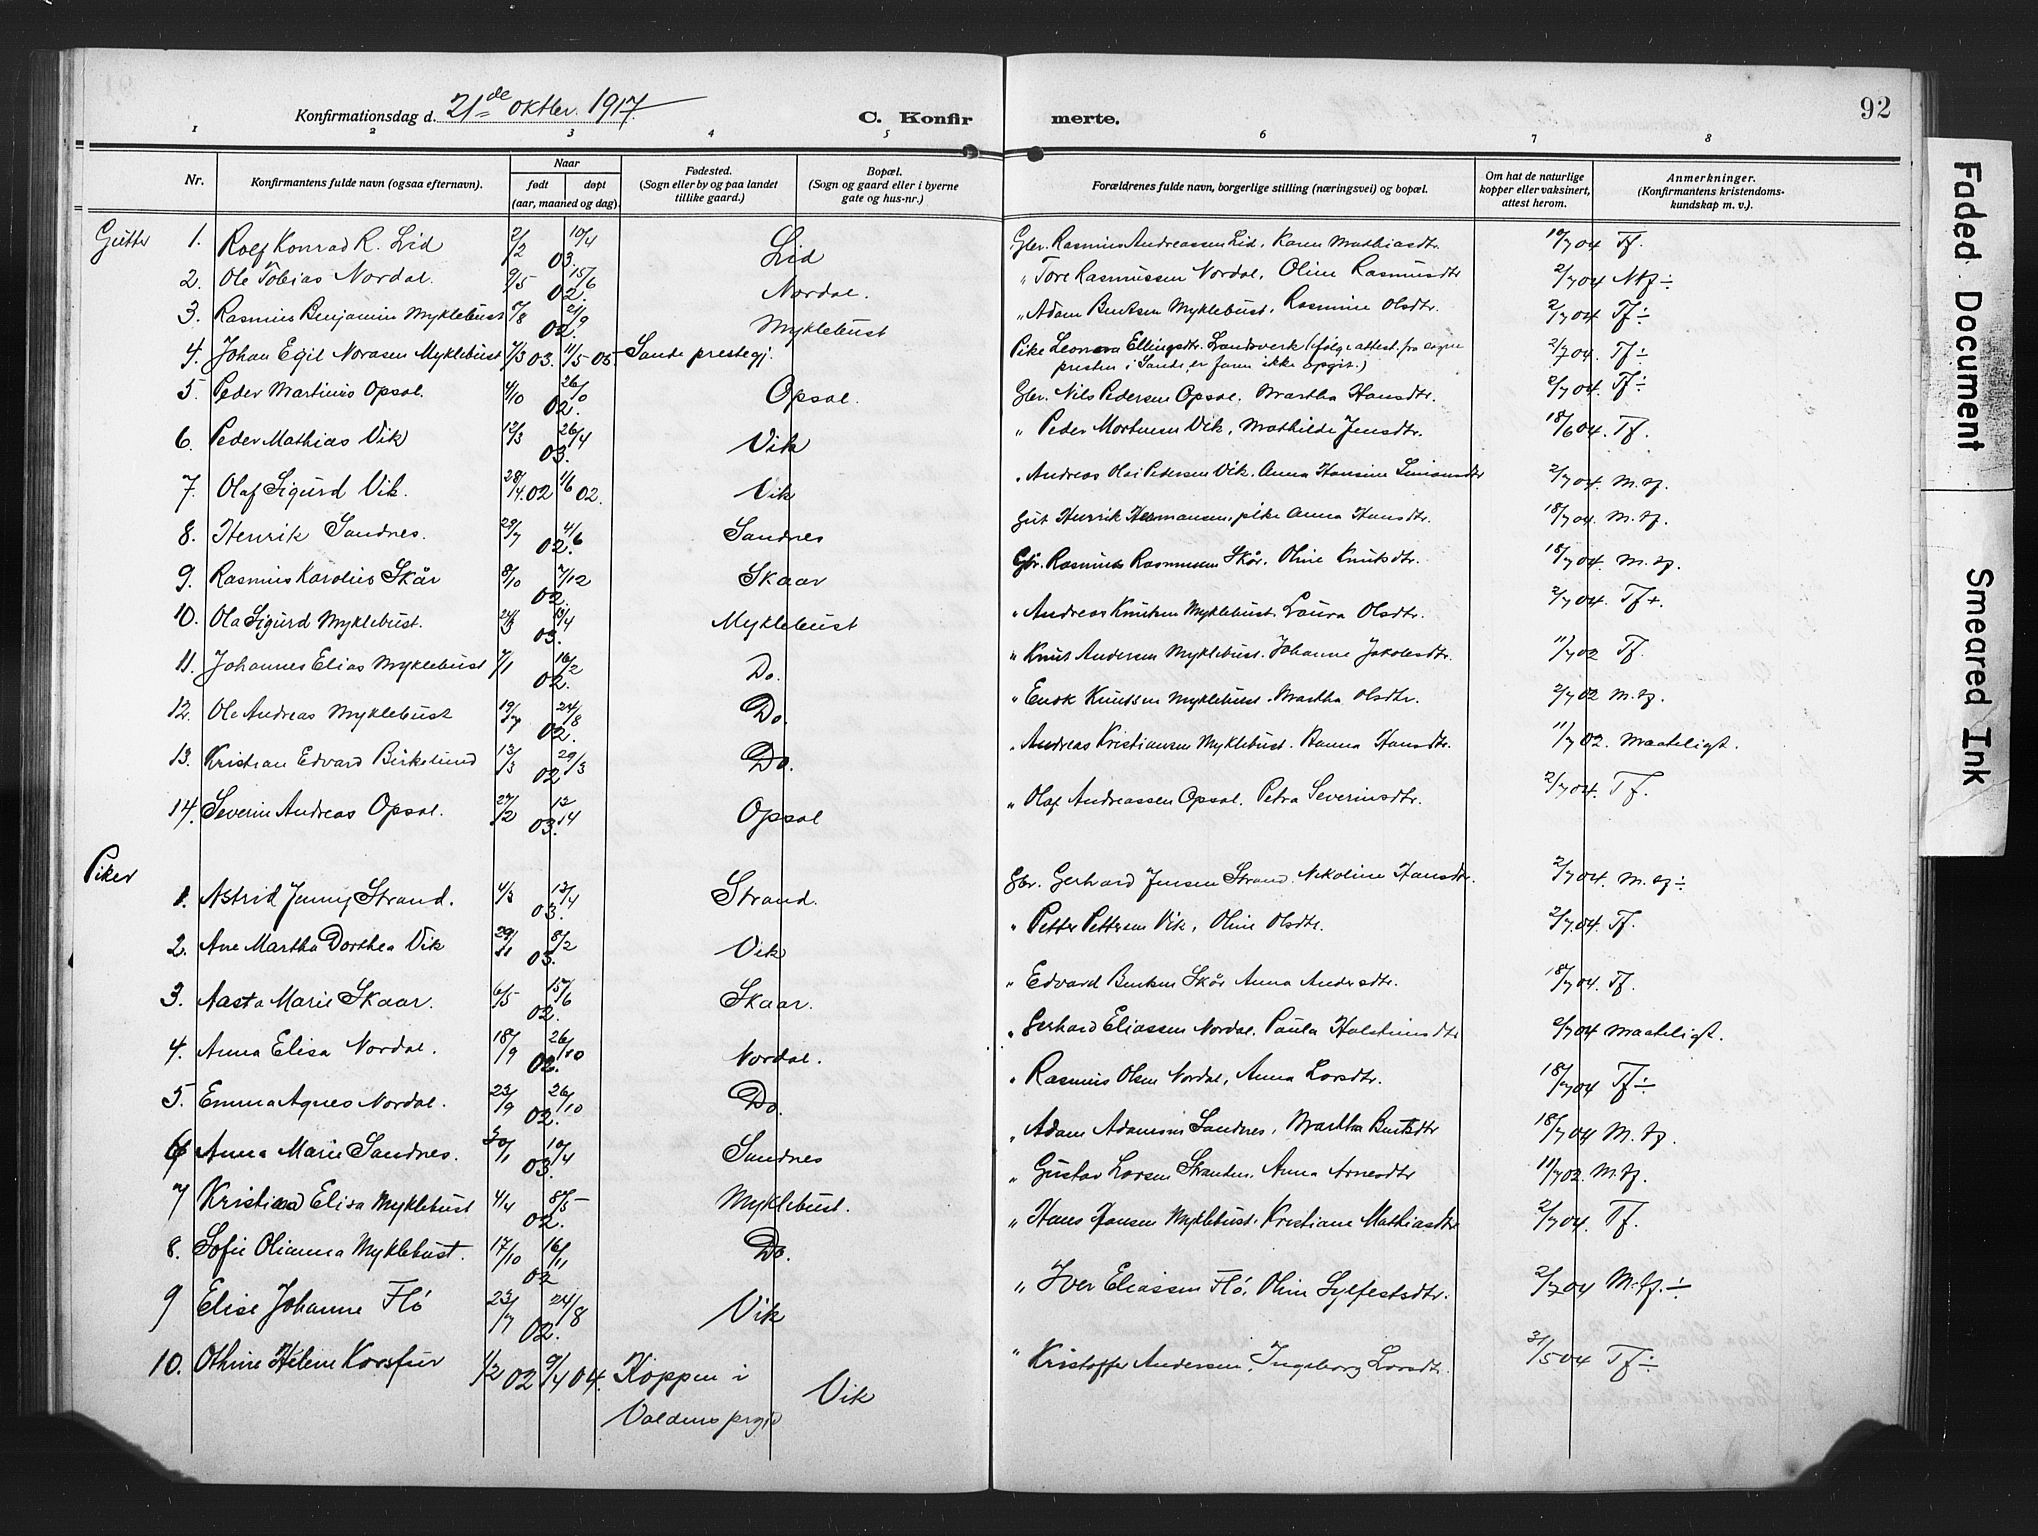 92
Konfirmationsdag d. 21de oktbr. 1917.
C. Konfir merte.
1 2 3 4 5 6 7 8
Nr.
Konfirmantens fulde navn (ogsaa efternavn).
Naar
født døpt
(aar, maaned og dag).
Fødested.
(Sogn eller by og paa landet
tillike gaard.)
Bopæl.
(Sogn og gaard eller i byerne
gate og hus-nr.)
Forældrenes fulde navn, borgerlige stilling (næringsvei) og bopæl.
Om hat de naturlige
kopper eller vaksinert,
attest herom.
Anmerkninger.
(Konfirmantens kristendoms-
kundskap m. v.).
Gutter 1. Rolf Konrad R. Lid 2/2 10/4 03. Lid Gbr. Rasmus Andreassen Lid. Karen Mathiasdtr. 19/7 04 Tf.
2. Ole Tobias Nordal. 9/5 15/6 02. Nordal. " Tore Rasmussen Nordal. Oline Rasmusdtr 2/7 04 Mtf ÷
3. Rasmus Benjamin Myklebust 5/8 21/9 02. Myklebust " Adam Bentsen Myklebust. Rasmine Olsdtr. 2/7 04 Tf ÷
4. Johan Egil Norasen Myklebust 7/3 03. 11/5 05 Sande prestegj. Pike Leonora Ellingsdtr. Landsverk (følge attest fra sogne
presten i Sande, er faren ikke opgit.) 2/7 04. Tf ÷
5. Peder Martinus Opsal. 4/10 26/10 02. Opsal. Gbr. Nils Pedersen Opsal. Martha Hansdtr. 2/7 04. Tf ÷
6. Peder Mathias Vik 12/3 26/4 03. Vik " Peder Mortensen Vik, Mathilde Jensdtr. 18/6 04. Tf.
7. Olaf Sigurd Vik. 28/4 02 1/6 02. Vik " Andreas Olai Pedersen Vik. Anna Hansine Simonsdtr 2/7 04. M. tf.
8. Henrik Sandnes. 29/7 4/6 02. Sandnes Gut Henrik Hermansen, pike Anna Hansdtr. 18/7 04. M. tf.
9. Rasmus Karolius Skår 8/10 7/12 02. Skaar Gbr. Rasmus Rasmussen Skår. Oline Knutsdtr. 18/7 04. M. tf.
10. Ola Sigurd Myklebust. 24/3 13/4 03. Myklebust " Andreas Knutsen Myklebust. Laura Olsdtr. 2/7 04. Tf +.
11. Johannes Elias Myklebust 7/1 16/2 02. Do. " Knut Andersen Myklebust. Johanne Jakobsdtr. 11/7 02 Tf.
12. Ole Andreas Myklebust 19/7 24/8 02. Do. " Enok Knutsen Myklebust. Martha Olsdtr. 2/7 02 M. tf.
13. Kristian Edvard Birkelund 13/3 29/3 02 Do. " Andreas Kristiansen Myklebust. Hanna Hansdtr. 11/7 02. Maateligt.
14. Severin Andreas Opsal. 27/2 12/4 03. Opsal " Olaf Andreassen Opsal. Petra Severinsdtr. 2/7 04. Tf.
Piker
1. Astrid Jenny Strand. 4/3 13/4 03. Strand. Gbr. Gerhard Jensen Strand. Nikoline Hansdtr. 2/7 04. M. tf ÷
2. Ane Martha Dorthea Vik 29/11 8/2 03. Vik " Petter Pettersen Vik, Oline Olsdtr. 2/7 04. Tf.
3. Aasta Marie Skaar. 6/5 15/6 02. Skaar. " Edvard Bentsen Skår Anna Andersdtr. 18/7 04. Tf.
4. Anna Elisa Nordal. 18/9 26/10 02. Nordal. " Gerhard Eliassen Nordal. Paula Halsteinsdtr 2/7 04 Maateligt.
5. Emma Agnes Nordal. 23/9 26/10 02. Do. " Rasmus Olsen Nordal, Anna Larsdtr. 18/7 04 Tf ÷
6. Anna Marie Sandnes. 30/1 10/4 03. Sandnes " Adam Adamsen Sandnes, Martha Bentsdtr 18/7 04 M. tf.
" Gustav Larsen Stranden. Anna Arnesdtr 11/7 02. M. tf.
7 Kristiana Elisa Myklebust 4/4 8/5 02. Myklebust. " Hans Hansen Myklebust. Kristiane Mathiasdtr 2/7 04. Tf.
8. Sofie Olianna Myklebust. 17/10 16/11 02 Do.
9 Elise Johanne Flö 23/7 24/8 02. Vik " Iver Eliassen Flö. Oline Sylfestsdtr. 2/7 04 M. tf. ÷
10. Othine Helene Korsfur 1/2 02 9/4 04. Koppen i
Valdens prgj. Vik " Kristoffer Andersen. Ingeborg Larsdtr. 31/5 04 Tf ÷
Faded Document
Smeared Ink